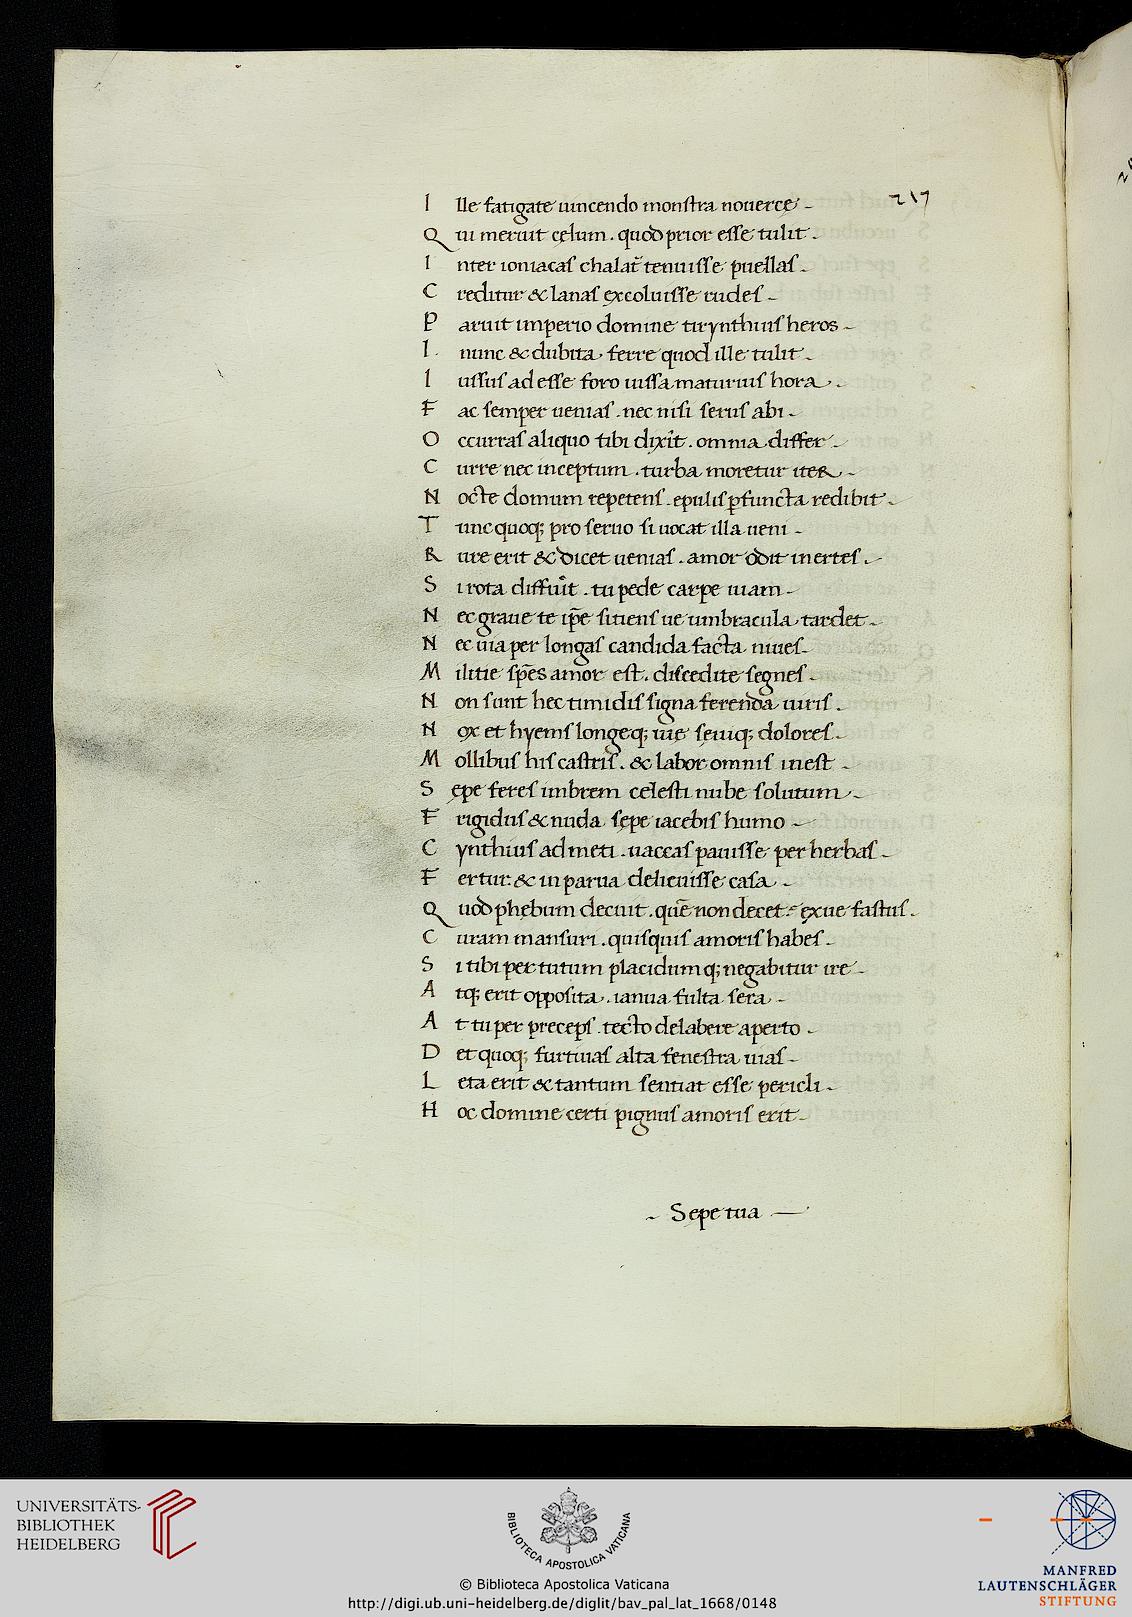 217
Ille fatigate uincendo monstra nouerce
Qui meruit cęlum . quod prior esse tulit
Inter ioniacas chalat̃ tenuisse puellas
Creditur & lanas excoluisse rudes
Paruit imperio domine tirynthius heros
I nunc & dubita ferre quod ille tulit
Iussus ad esse foro iussa maturius hora
Fac semper uenias . nec nisi serus abi
Occurras aliquo tibi dixit . omnia differ
Curre nec inceptum . turba moretur iter
Nocte domum repetens . epulis ꝑfuncta redibit
Tunc quoq; pro seruo si uocat illa ueni
Rure erit & dicet uenias . amor odit inertes
Si rota diffuit . tu pede carpe uiam
Nec graue te ip̄e sitiens ue umbracula tardet
Nec uia per longas candida facta niues
Militie sp̄es amor est . discedite segnes
Non sunt hec timidis signa ferenda uiris
Nox et hyems longeq; uie seuiq; dolores
Mollibus his castris . & labor omnis inest
Sepe feres imbrem celesti nube solutum
Frigidus & nuda sępe iacebis humo
Cynthius admeti . uaccas pauisse per herbas
Fertur . & in parua delicuisse casa
Quod phębum decuit . quē non decet exue fastus
Curam mansuri . quisquis amoris habes
Si tibi per tutum placidum q; negabitur ire
Atq; erit opposita . ianua fulta sera
At tu per preceps . tecto delabere aperto
Det quoq; furtiuas alta fenestra uias
Leta erit & tantum sentiat esse pericli
Hoc domine certi pignus amoris erit
Sepe tua
UNIVERSITÄTS-
BIBLIOTHEK
HEIDELBERG
BIBLIOTECA APOSTOLICA VATICANA
© Biblioteca Apostolica Vaticana
http://digi.ub.uni-heidelberg.de/diglit/bav_pal_lat_1668/0148
MANFRED
LAUTENSCHLÄGER
STIFTUNG